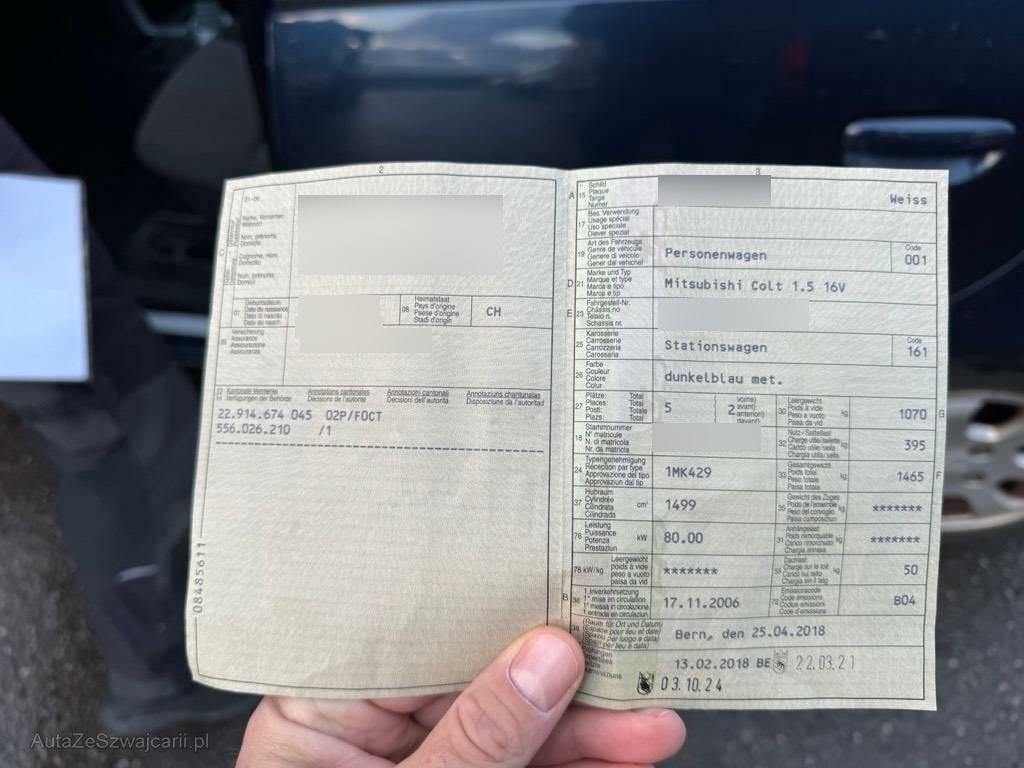 2
01-06
C
Name, Vornamen
Wohnort
Nom, prénoms
Domicile
Cognome, nomi
Domicilio
Num, prenoms
Domicil
07
Geburtsdatum
Date de naissance
Data di nascita
Data da nasch.
08
Heimatstaat
Pays d'origine
Paese d'origine
Stadi d'origin
CH
09
Versicherung
Assurance
Assicurazione
Assicuranza
Kantonale Vermerke
Verfügungen der Behörde
Annotations cantonales
Décisions de l'autorité
Annotazioni cantonali
Decisioni dell'autorità
Annotaziuns chantunalas
Disposiziuns da l'autoritad
22.914.674 045 02P/FOCT
556.026.210 /1
08485611
3
A 15
Schild
Plaque
Targa
Numer
Weiss
17
Bes. Verwendung
Usage spécial
Uso speciale
Diever spezial
19
Art des Fahrzeugs
Genre de véhicule
Genere di veicolo
Gener dal vehichel
Personenwagen
Code
001
D 21
Marke und Typ
Marque et type
Marca e tipo
Marca e tip
Mitsubishi Colt 1.5 16V
E 23
Fahrgestell-Nr.
Châssis no
Telaio n.
Schassis nr.
25
Karosserie
Carrosserie
Carrozzeria
Carossaria
Stationswagen
Code
161
26
Farbe
Couleur
Colore
Colur
dunkelblau met.
27
Plätze: Total
Places: Total
Posti: Totale
Plazs: Total
5
2
vorne)
avant)
anteriori)
davant)
30
Leergewicht
Poids à vide
Peso a vuoto
Paisa da vid
kg
1070
G
18
Stammnummer
N° matricule
N. di matricola
Nr. da matricla
32
Nutz-/Sattellast
Charge utile/sellette
Carico utile/sella
Chargia utila/sella
kg
395
24
Typengenehmigung
Réception par type
Approvazione del tipo
Approvaziun dal tip
1MK429
33
Gesamtgewicht
Poids total
Peso totale
Paisa totala
kg
1465
F
37
Hubraum
Cylindrée
Cilindrata
Cilindrada
cm³
1499
35
Gewicht des Zuges
Poids de l'ensemble
Peso del convoglio
Paisa cumposiziun
kg
*******
76
Leistung
Puissance
Potenza
Prestaziun
kW
80.00
31
Anhängelast
Poids remorquable
Carico rimorchiato
Chargia annexa
kg
*******
78 kW/kg
Leergewicht
poids à vide
peso a vuoto
paisa da vid
*******
55
Dachlast
Charge sur le toit
Carico sul tetto
Chargia sin il tetg
kg
50
B 36
1. Inverkehrsetzung
1re mise en circulation
1a messa in circolazione
1. entrada en circulaziun
17.11.2006
72
Emissionscode
Code émissions
Codice emissioni
Code d'emissiuns
B04
38
(Raum für Ort und Datum)
(Espace pour lieu et date)
(Spazio per luogo e data)
(Spazi per lieu e data)
Bern, den 25.04.2018
13.02.2018 BE 22.03.21
03.10.24
AutaZeSzwajcarii.pl